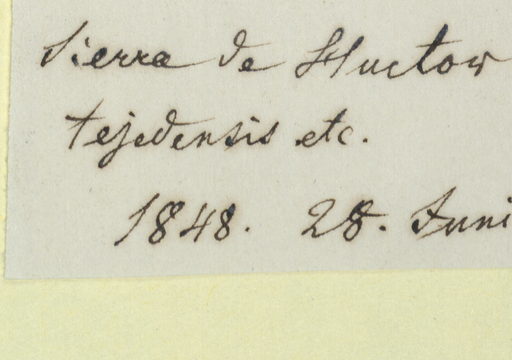 Sierra de Huetor
tejedensis etc.
1848. 28. Juni